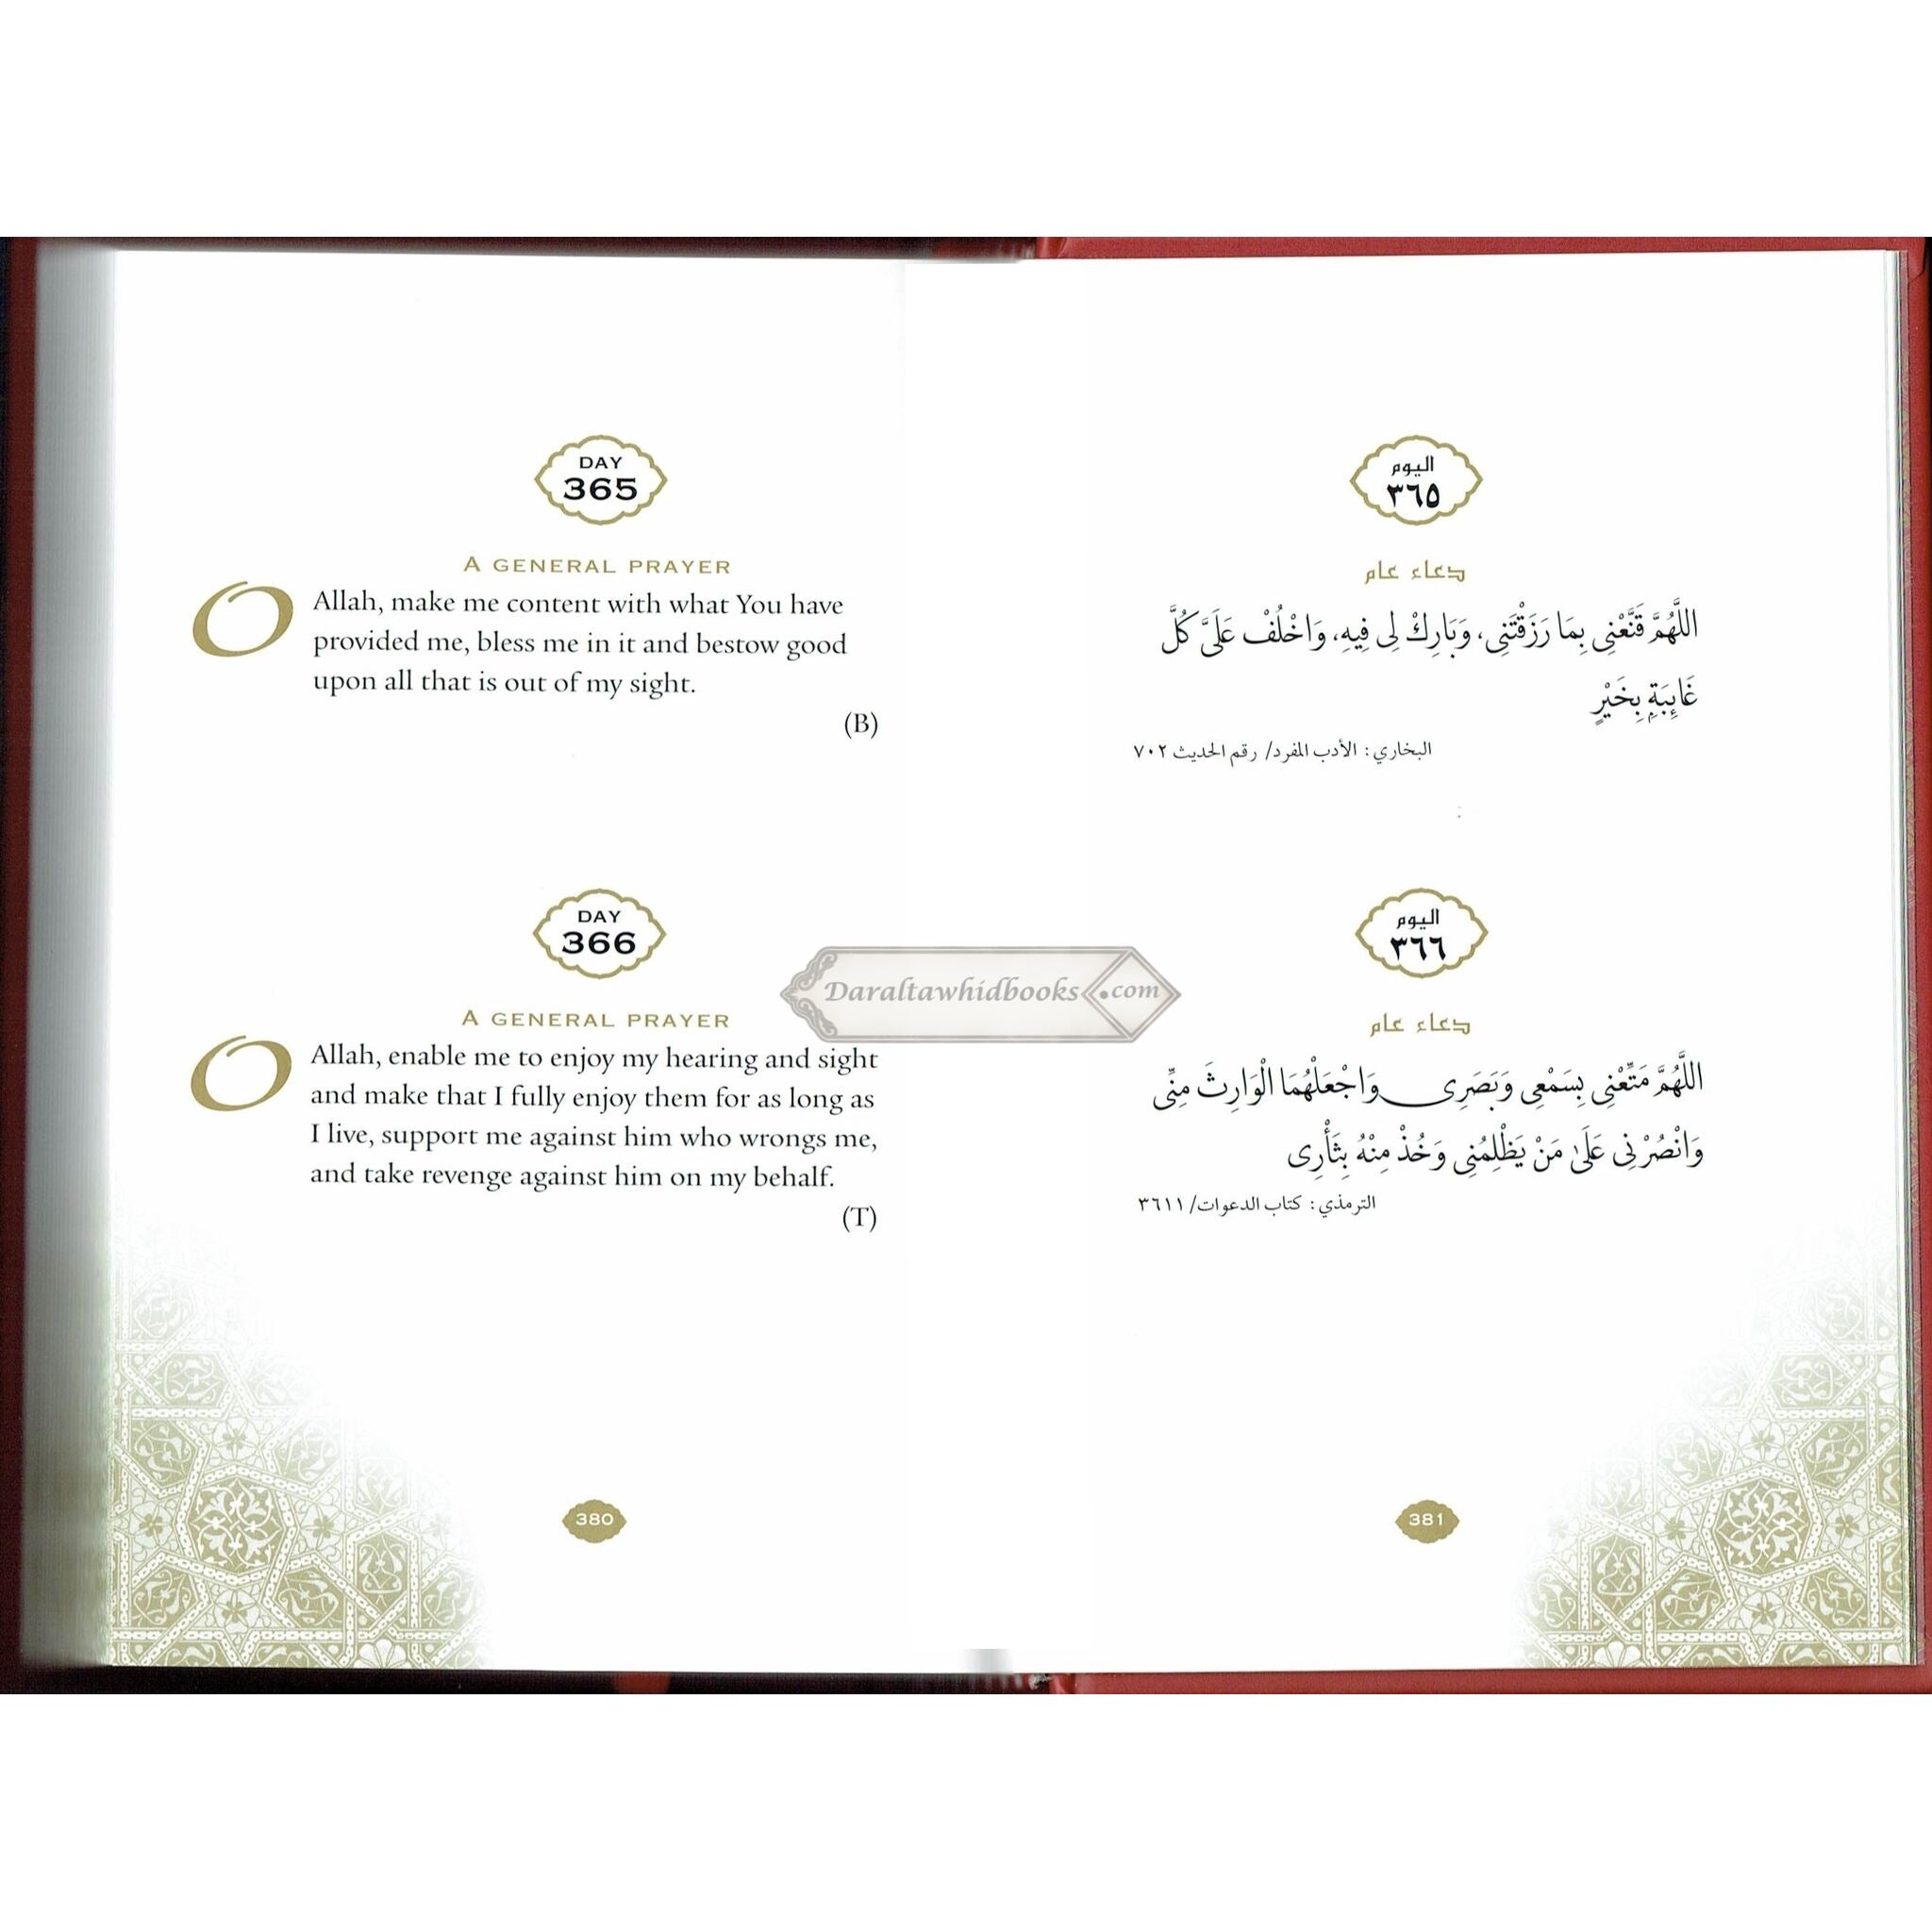 DAY
365
A GENERAL PRAYER
O Allah, make me content with what You have
provided me, bless me in it and bestow good
upon all that is out of my sight.
(B)
DAY
366
A GENERAL PRAYER
O Allah, enable me to enjoy my hearing and sight
and make that I fully enjoy them for as long as
I live, support me against him who wrongs me,
and take revenge against him on my behalf.
(T)
380
Daraltawhidbooks.com
اليوم
٣٦٥
دعاء عام
اللَّهُمَّ قَنَّعْنِي بِمَا رَزَقْتَنِي، وَبَارِكْ لِي فِيهِ، وَاخْلُفْ عَلَيَّ كُلَّ
غَائِبَةٍ بِخَيْرٍ
البخاري: الأدب المفرد/ رقم الحديث ٧٠٢
اليوم
٣٦٦
دعاء عام
اللَّهُمَّ مَتِّعْنِي بِسَمْعِي وَبَصَرِي وَاجْعَلْهُمَا الْوَارِثَ مِنِّي
وَانْصُرْنِي عَلَىٰ مَنْ يَظْلِمُنِي وَخُذْ مِنْهُ بِثَأْرِي
الترمذي: كتاب الدعوات/ ٣٦١١
381